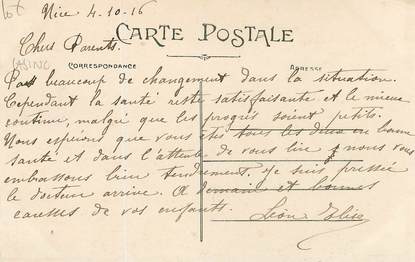 Nice 4-10-16
CARTE POSTALE
Chers Parents.
CORRESPONDANCE
ADRESSE
CASINO
Pas beaucoup de changement dans la situation.
Cependant la santé reste satisfaisante et le mieux
continue, malgré que les progrès soient petits.
Nous espérons que vous êtes tous les deux en bonne
santé et dans l'attente de vous lire, nous vous
embrassons bien tendrement. Je suis pressée
le docteur arrive. A demain et bonnes
caresses de vos enfants.
Léon